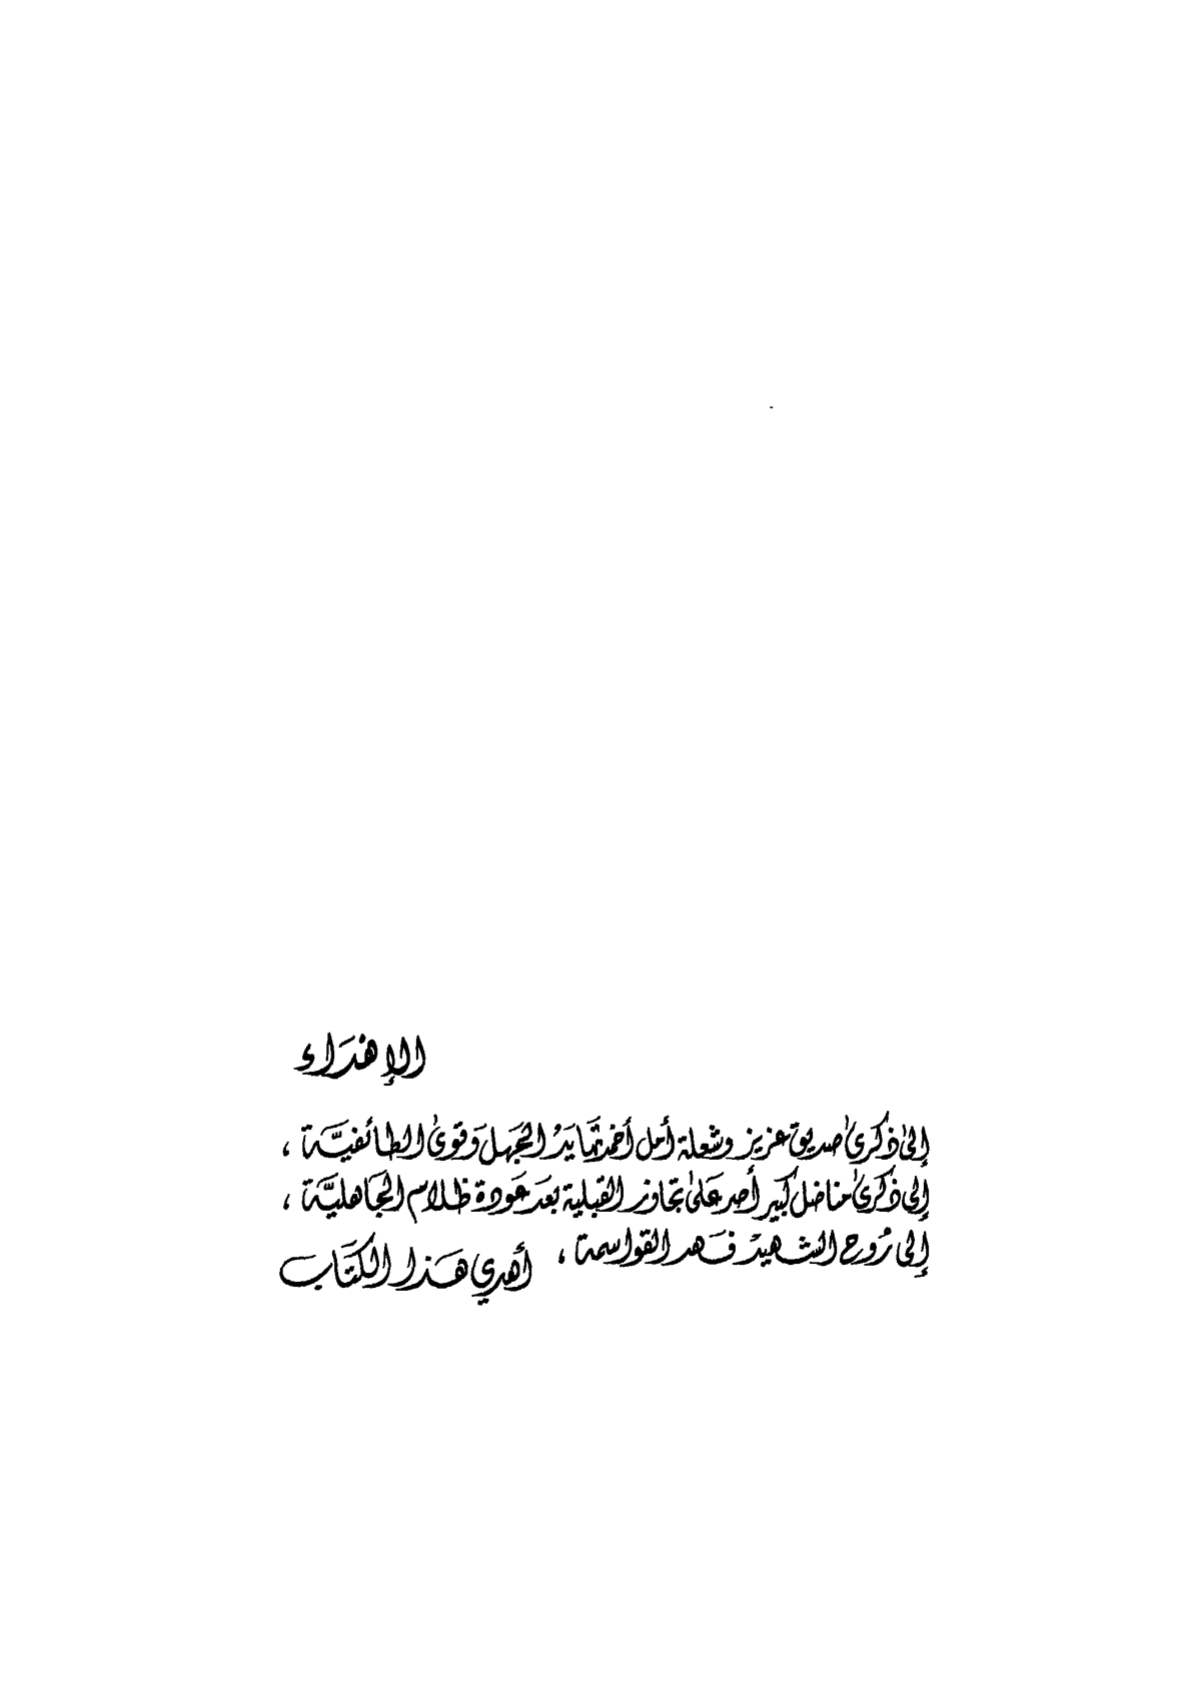 الإهدَاء
إلىٰ ذكرىٰ صديق عزيز وشعلة أمل أخمدتها يَدُ الجَهل وَقوىٰ الطائفيَّة ،
إلى ذكرىٰ مناضل كبير أصر عَلىٰ تجاوز القبلية بعَد عَودة ظلام الجَاهليَّة ،
إلى رُوح الشهيد فَهد القواسمة ،
أهدي هَذا الكتَاب